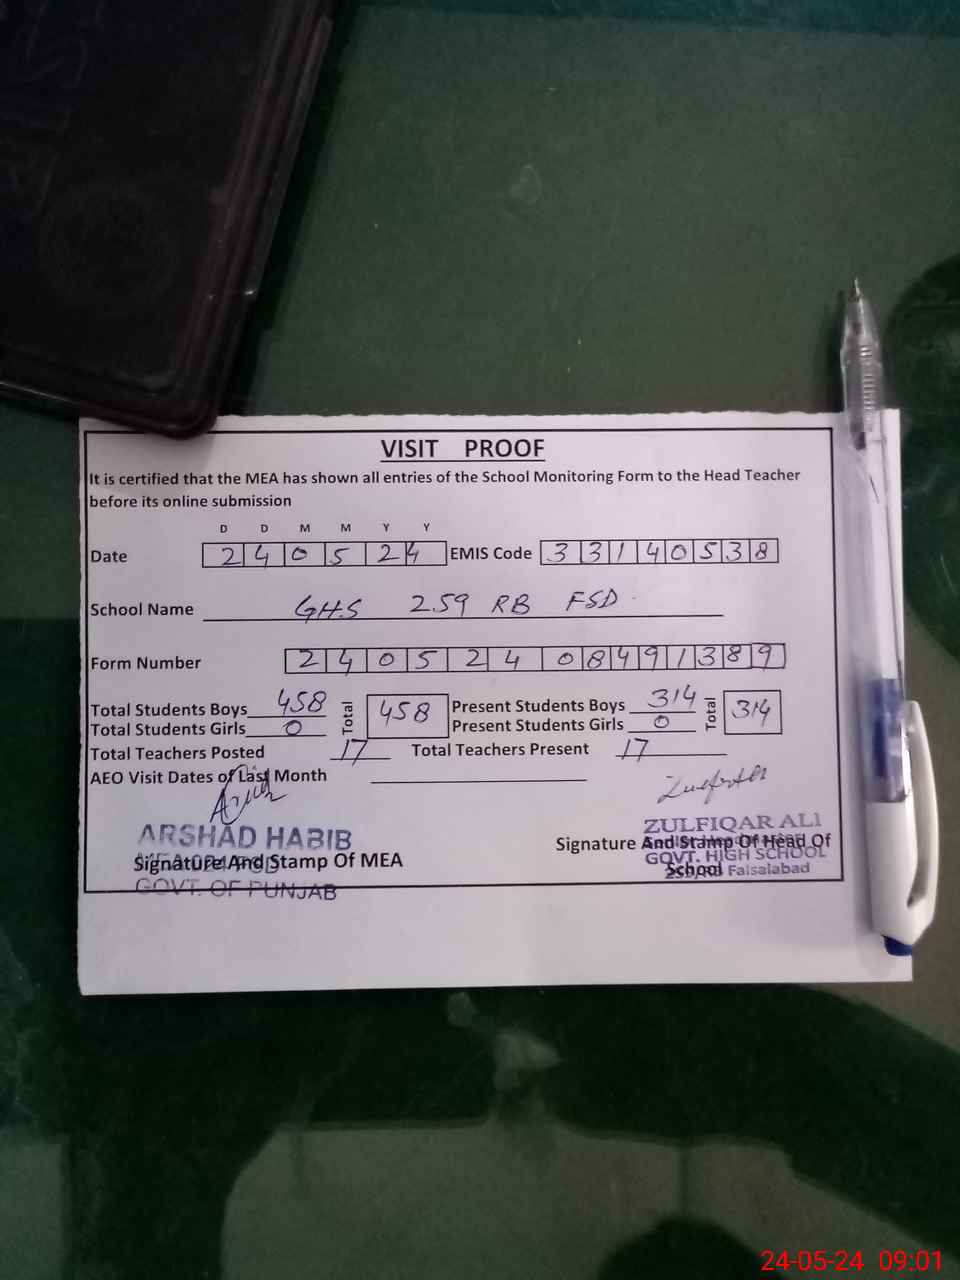 VISIT PROOF
It is certified that the MEA has shown all entries of the School Monitoring Form to the Head Teacher
before its online submission
D D M M Y Y
Date 2 4 0 5 2 4 EMIS Code 3 3 1 4 0 5 3 8
School Name GHS 259 RB FSD
Form Number 2 4 0 5 2 4 0 8 4 9 1 3 8 9
Total Students Boys 458 Total 458 Present Students Boys 314 Total 314
Total Students Girls 0 Present Students Girls 0
Total Teachers Posted 17 Total Teachers Present 17
AEO Visit Dates of Last Month
ARSHAD HABIB
Signature And Stamp Of MEA
GOVT. OF PUNJAB
ZULFIQAR ALI
Signature And Stamp Of Head Of
GOVT. HIGH SCHOOL
School
Faisalabad
24-05-24 09:01